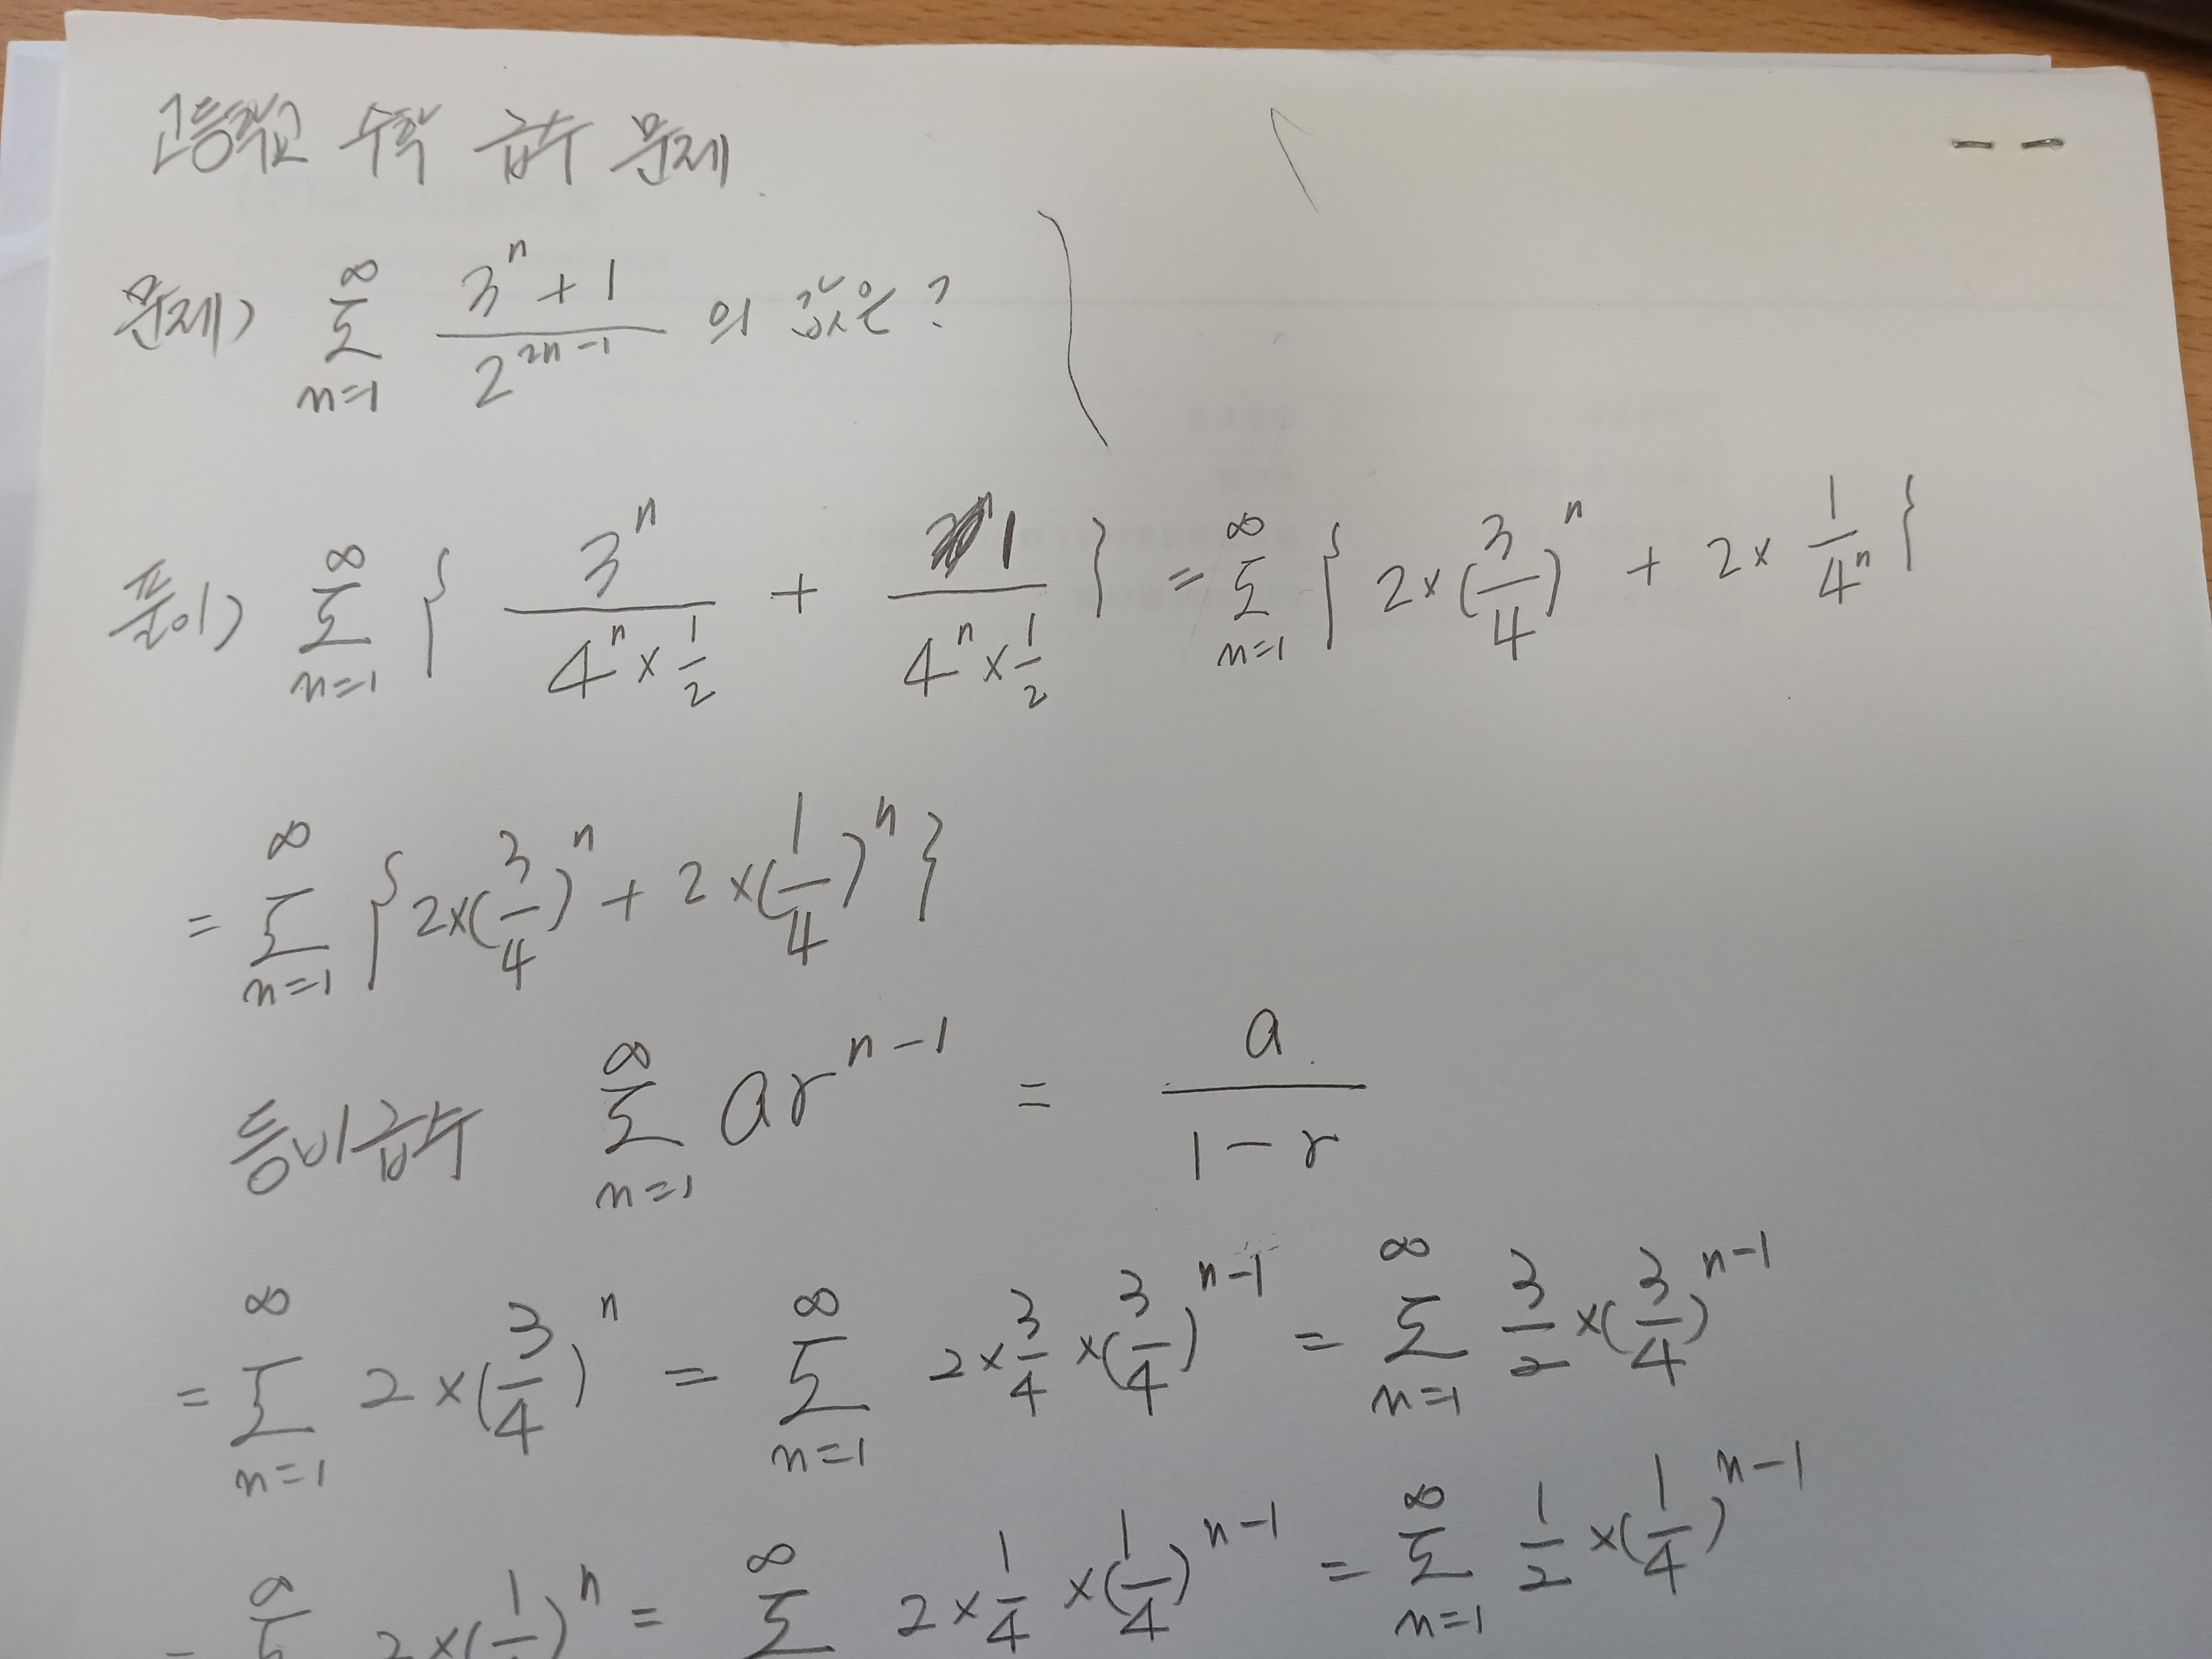 고등학교 수학 급수 문제
문제) ∑_{n=1}^{∞} (3^n + 1)/(2^{2n-1}) 의 값은?
풀이) ∑_{n=1}^{∞} { 3^n/(4^n × 1/2) + 1/(4^n × 1/2) } = ∑_{n=1}^{∞} { 2×(3/4)^n + 2× 1/4^n }
= ∑_{n=1}^{∞} { 2×(3/4)^n + 2×(1/4)^n }
등비급수 ∑_{n=1}^{∞} ar^{n-1} = a/(1-r)
= ∑_{n=1}^{∞} 2×(3/4)^n = ∑_{n=1}^{∞} 2×3/4×(3/4)^{n-1} = ∑_{n=1}^{∞} 3/2×(3/4)^{n-1}
= ∑^{∞} 2×(1/)^n = ∑^{∞} 2×1/4×(1/4)^{n-1} = ∑_{n=1}^{∞} 1/2×(1/4)^{n-1}